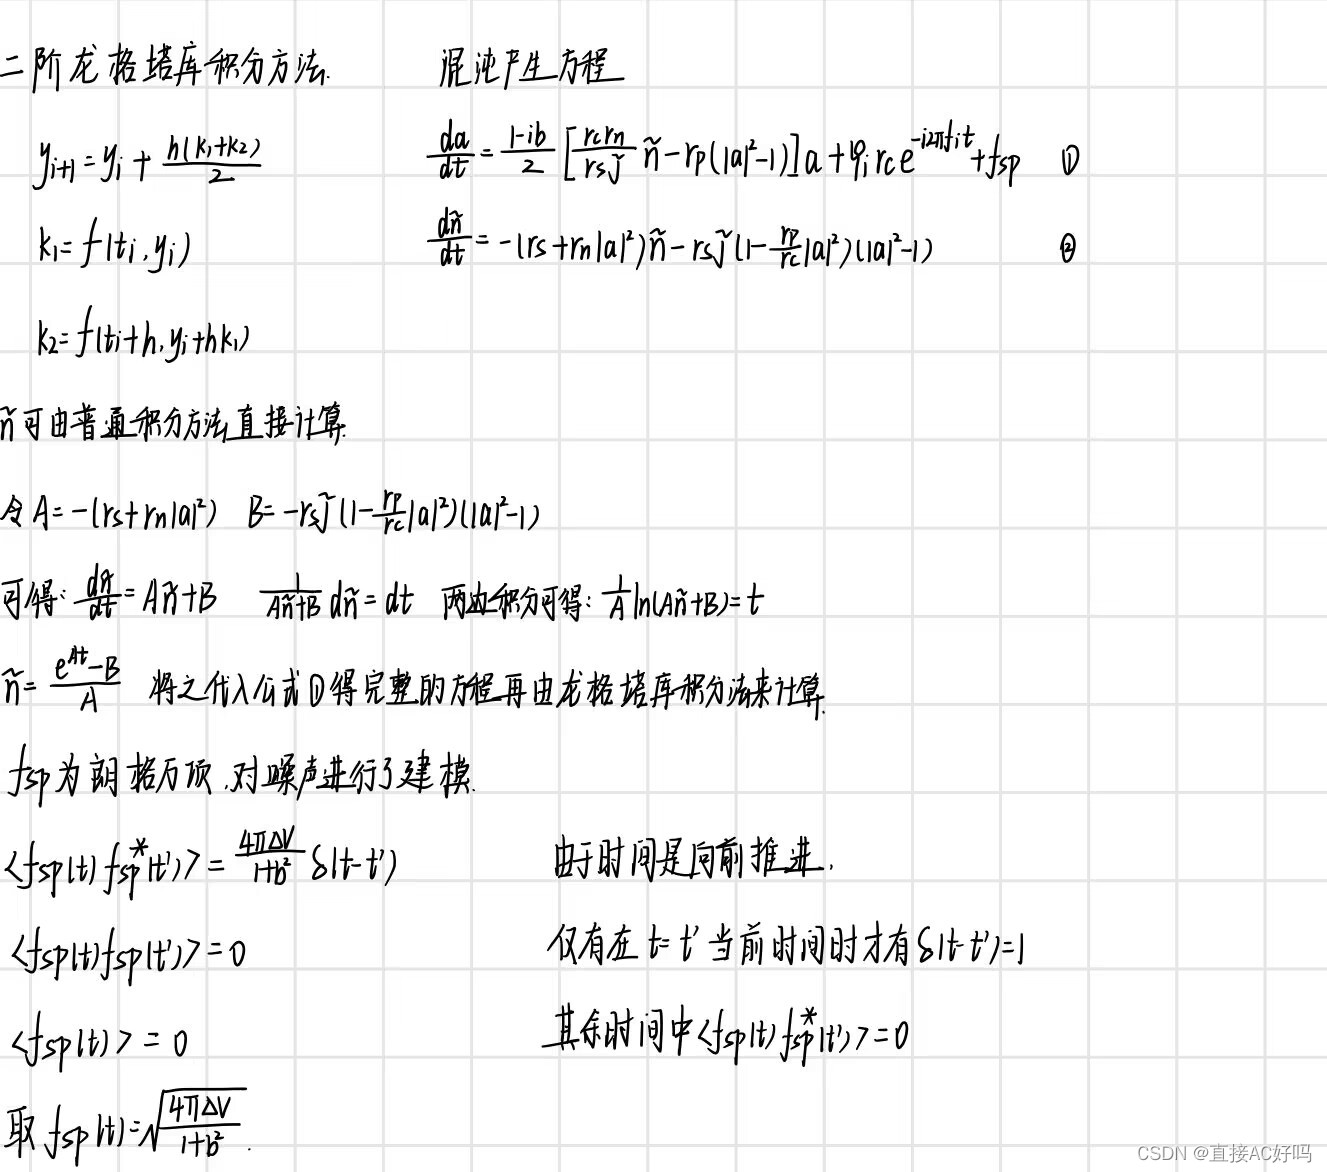 二阶龙格塔库积分方法. 混沌产生方程
y_{i+1} = y_i + \frac{h(k_1+k_2)}{2} \frac{da}{dt} = \frac{1-ib}{2} [\frac{r_c r_n}{r_s \tilde{j}} \tilde{n} - r_p(|a|^2-1)]a + φ_i r_c e^{-i2πf_i t} + f_{sp} ①
k_1 = f(t_i, y_i) \frac{d\tilde{n}}{dt} = -(r_s + r_n|a|^2)\tilde{n} - r_s\tilde{j}(1-\frac{r_p}{r_c}|a|^2)(|a|^2-1) ②
k_2 = f(t_i+h, y_i+hk_1)
\tilde{n}可由普通积分方法直接计算.
令 A = -(r_s+r_n|a|^2) B = -r_s\tilde{j}(1-\frac{r_p}{r_c}|a|^2)(|a|^2-1)
可得: \frac{d\tilde{n}}{dt} = A\tilde{n}+B \frac{1}{A\tilde{n}+B} d\tilde{n} = dt 两边积分可得: \frac{1}{A} ln(A\tilde{n}+B) = t
\tilde{n} = \frac{e^{At}-B}{A} 将之代入公式①得完整的方程再由龙格塔库积分法来计算.
f_{sp}为朗格万项,对噪声进行了建模.
<f_{sp}(t) f_{sp}^*(t')> = \frac{4πΔV}{1+b^2} δ(t-t') 由于时间是向前推进,
<f_{sp}(t) f_{sp}(t')> = 0 仅有在 t=t' 当前时间时才有δ(t-t')=1
<f_{sp}(t)> = 0 其余时间中<f_{sp}(t) f_{sp}^*(t')> = 0
取 f_{sp}(t) = \sqrt{\frac{4πΔV}{1+b^2}}.
CSDN @直接AC好吗